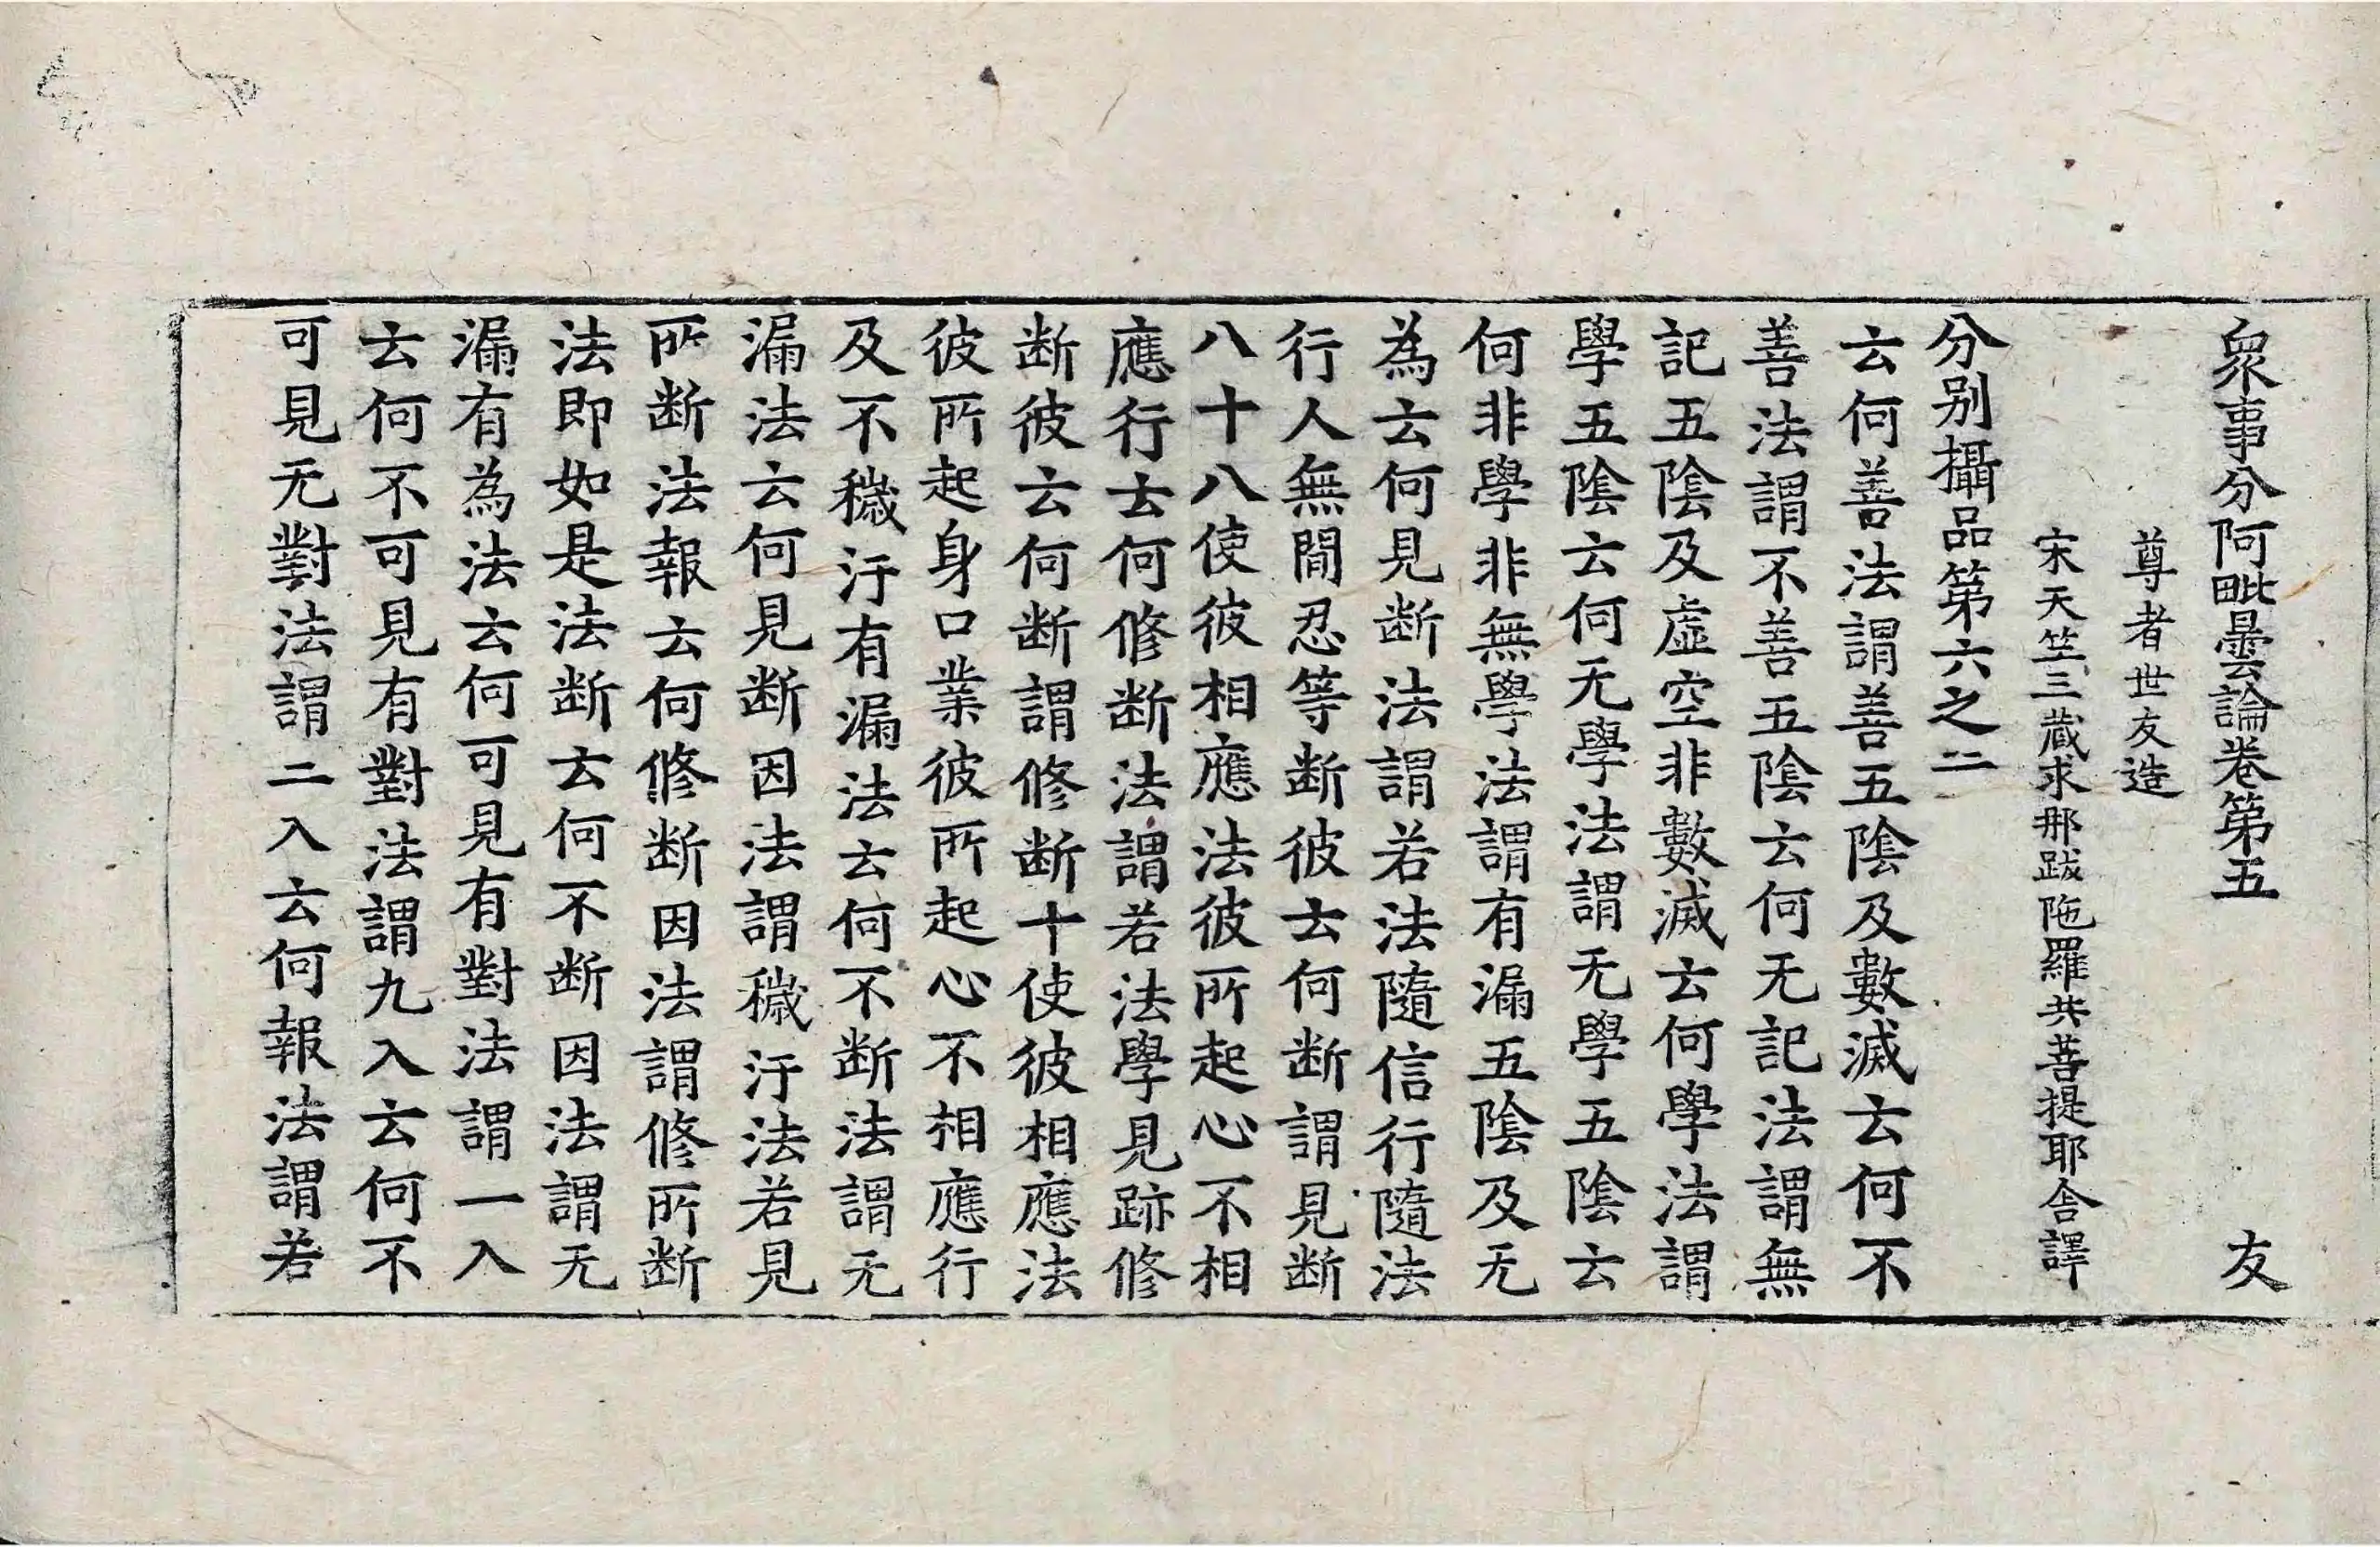 衆事分阿毗曇論卷第五 友
尊者世友造
宋天竺三藏求那跋陁羅共菩提耶舎譯
分别攝品第六之二
云何善法謂善五陰及數滅云何不
善法謂不善五陰云何无記法謂無
記五陰及虛空非數滅云何學法謂
學五陰云何无學法謂无學五陰云
何非學非無學法謂有漏五陰及无
為云何見断法謂若法隨信行隨法
行人無閒忍等断彼云何断謂見断
八十八使彼相應法彼所起心不相
應行云何修断法謂若法學見跡修
断彼云何断謂修断十使彼相應法
彼所起身口業彼所起心不相應行
及不穢汙有漏法云何不断法謂无
漏法云何見断因法謂穢汙法若見
所断法報云何修断因法謂修所断
法即如是法断云何不断因法謂无
漏有為法云何可見有對法謂一入
云何不可見有對法謂九入云何不
可見无對法謂二入云何報法謂若